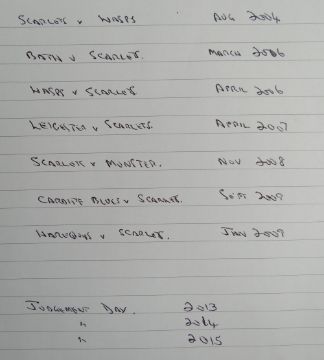 SCARLETS v WASPS AUG 2004
BATH v SCARLETS. MARCH 2006
WASPS v SCARLETS APRIL 2006
LEICESTER v SCARLETS. APRIL 2007
SCARLETS v MUNSTER. NOV 2008
CARDIFF BLUES v SCARLETS. SEPT 2009
HARLEQUINS v SCARLETS. JAN 2009
JUDGEMENT DAY. 2013
" 2014
" 2015